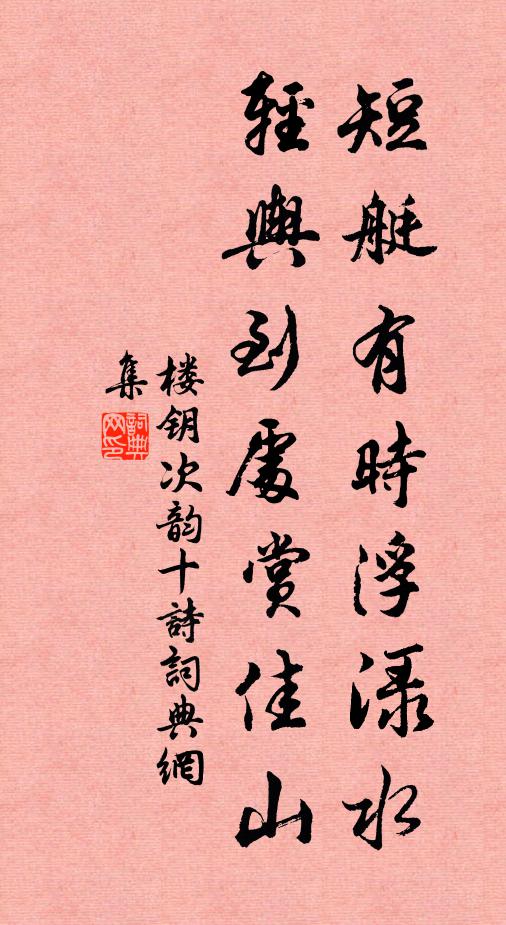 短艇有時浮渌水
輕輿到處賞佳山
楼钥次韵十詩詞典網
集
詞典网印